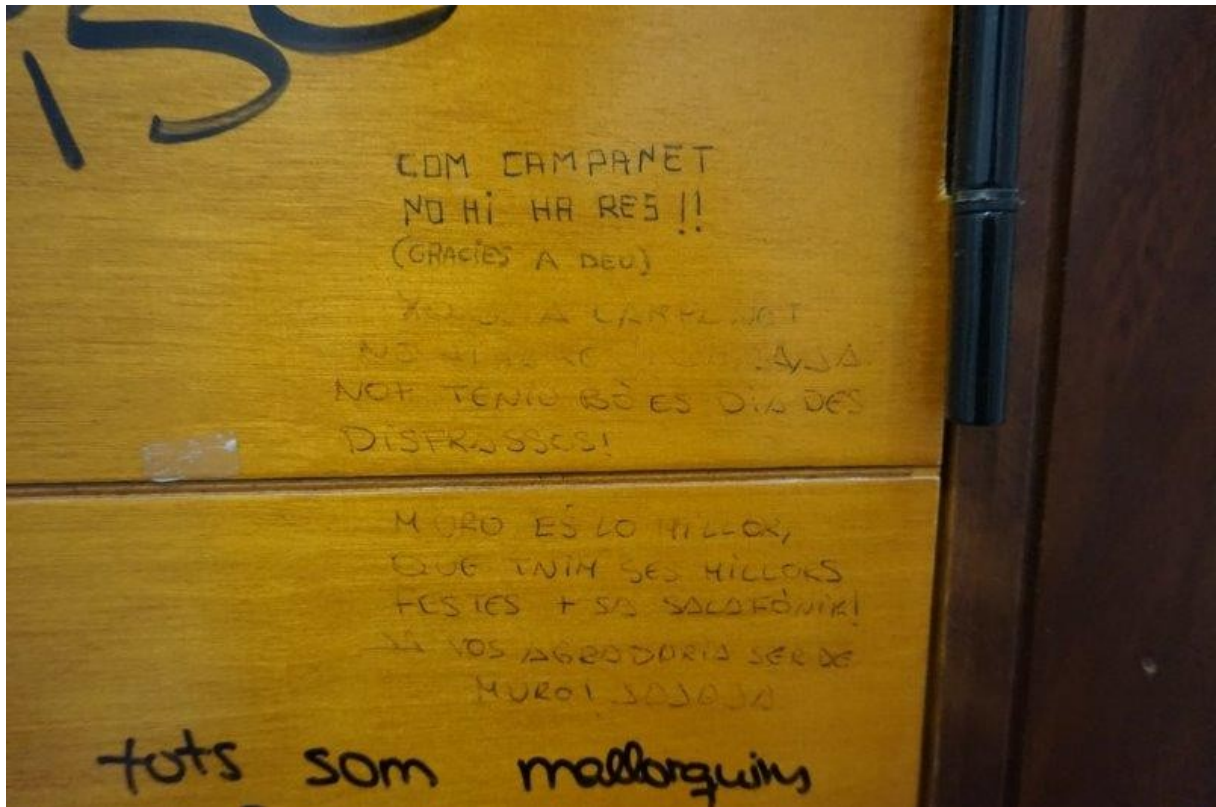 COM CAMPANET
NO HI HA RES!!
(GRACIES A DEU)
A
NO JAJA
NOT TENIU BÒ ES DIA DES
DISFRESSES!
MURO ES LO MILLOR,
QUE TNIM SES MILLORS
FESTES + SA
JA VOS AGRADARIA SER DE
MURO! JAJAJA
tots som mallorquins